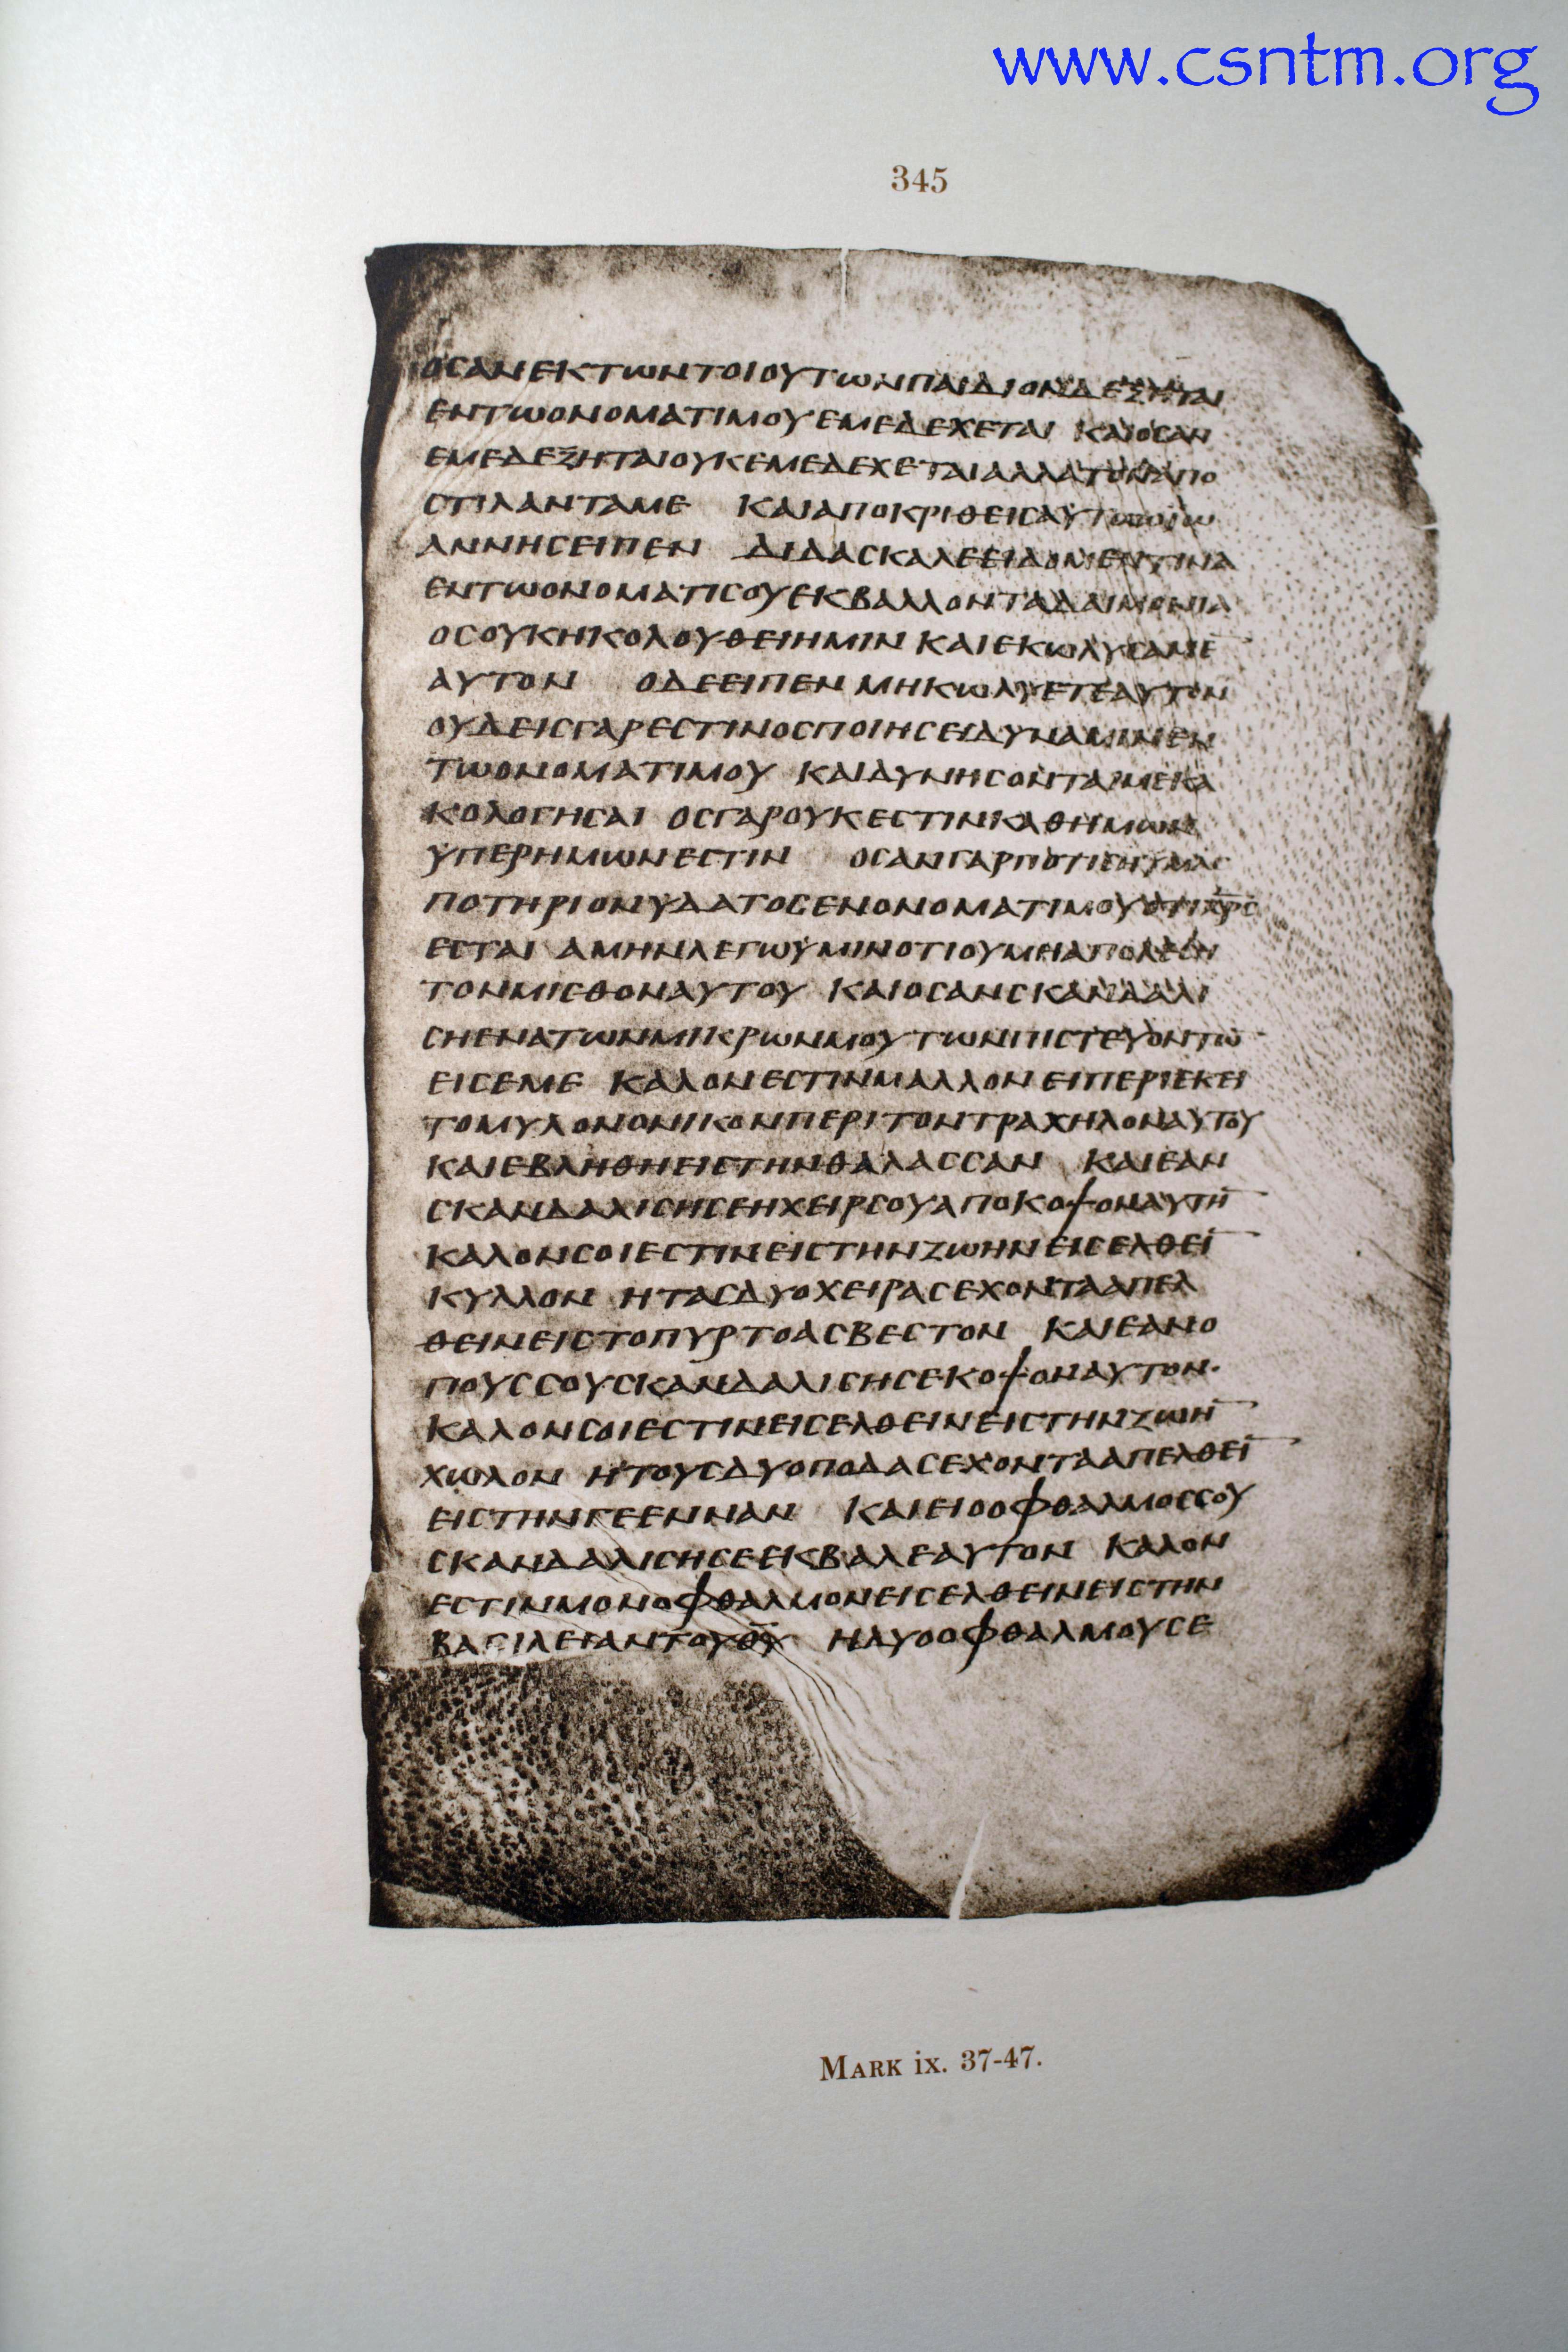 www.csntm.org
345
ΟϹΑΝΕΚΤΩΝΤΟΙΟΥΤΩΝΠΑΙΔΙΟΝΔΕΞΗΤΑΙ
ΕΝΤΩΟΝΟΜΑΤΙΜΟΥΕΜΕΔΕΧΕΤΑΙ ΚΑΙΟϹΑΝ
ΕΜΕΔΕΞΗΤΑΙΟΥΚΕΜΕΔΕΧΕΤΑΙΑΛΛΑΤΟΝΑΠΟ
ϹΤΙΛΑΝΤΑΜΕ ΚΑΙΑΠΟΚΡΙΘΕΙϹΑΥΤΩΟΙΩ
ΑΝΝΗϹΕΙΠΕΝ ΔΙΔΑϹΚΑΛΕΕΙΔΟΜΕΝΤΙΝΑ
ΕΝΤΩΟΝΟΜΑΤΙϹΟΥΕΚΒΑΛΛΟΝΤΑΔΑΙΜΟΝΙΑ
ΟϹΟΥΚΗΚΟΛΟΥΘΕΙΗΜΙΝ ΚΑΙΕΚΩΛΥϹΑΜΕ̅
ΑΥΤΟΝ ΟΔΕΕΙΠΕΝ ΜΗΚΩΛΥΕΤΕΑΥΤΟΝ
ΟΥΔΕΙϹΓΑΡΕϹΤΙΝΟϹΠΟΙΗϹΕΙΔΥΝΑΜΙΝΕΝ
ΤΩΟΝΟΜΑΤΙΜΟΥ ΚΑΙΔΥΝΗϹΟΝΤΑΙΜΕΚΑ
ΚΟΛΟΓΗϹΑΙ ΟϹΓΑΡΟΥΚΕϹΤΙΝΚΑΘΗΜΩΝ
ΥΠΕΡΗΜΩΝΕϹΤΙΝ ΟϹΑΝΓΑΡΠΟΤΙϹΗΥΜΑϹ
ΠΟΤΗΡΙΟΝΥΔΑΤΟϹΕΝΟΝΟΜΑΤΙΜΟΥΟΤΙΧ̅Ρ̅Ϲ̅
ΕϹΤΑΙ ΑΜΗΝΛΕΓΩΥΜΙΝΟΤΙΟΥΜΗΑΠΟΛΕϹΗ
ΤΟΝΜΙϹΘΟΝΑΥΤΟΥ ΚΑΙΟϹΑΝϹΚΑΝΔΑΛΙ
ϹΗΕΝΑΤΩΝΜΙΚΡΩΝΜΟΥΤΩΝΠΙϹΤΕΥΟΝΤΩ̅
ΕΙϹΕΜΕ ΚΑΛΟΝΕϹΤΙΝΜΑΛΛΟΝΕΙΠΕΡΙΕΚΕΙ
ΤΟΜΥΛΟΝΟΝΙΚΟΝΠΕΡΙΤΟΝΤΡΑΧΗΛΟΝΑΥΤΟΥ
ΚΑΙΕΒΛΗΘΗΕΙϹΤΗΝΘΑΛΑϹϹΑΝ ΚΑΙΕΑΝ
ϹΚΑΝΔΑΛΙϹΗϹΕΗΧΕΙΡϹΟΥΑΠΟΚΟΨΟΝΑΥΤΗ̅
ΚΑΛΟΝϹΟΙΕϹΤΙΝΕΙϹΤΗΝΖΩΗΝΕΙϹΕΛΘΕΙ̅
ΚΥΛΛΟΝ ΗΤΑϹΔΥΟΧΕΙΡΑϹΕΧΟΝΤΑΑΠΕΛ
ΘΕΙΝΕΙϹΤΟΠΥΡΤΟΑϹΒΕϹΤΟΝ ΚΑΙΕΑΝΟ
ΠΟΥϹϹΟΥϹΚΑΝΔΑΛΙϹΗϹΕΚΟΨΟΝΑΥΤΟΝ·
ΚΑΛΟΝϹΟΙΕϹΤΙΝΕΙϹΕΛΘΕΙΝΕΙϹΤΗΝΖΩΗ̅
ΧΩΛΟΝ ΗΤΟΥϹΔΥΟΠΟΔΑϹΕΧΟΝΤΑΑΠΕΛΘΕΙ̅
ΕΙϹΤΗΝΓΕΕΝΝΑΝ ΚΑΙΕΙΟΟΦΘΑΛΜΟϹϹΟΥ
ϹΚΑΝΔΑΛΙϹΗϹΕΕΚΒΑΛΕΑΥΤΟΝ ΚΑΛΟΝ
ΕϹΤΙΝΜΟΝΟΦΘΑΛΜΟΝΕΙϹΕΛΘΕΙΝΕΙϹΤΗΝ
ΒΑϹΙΛΕΙΑΝΤΟΥΘ̅Υ̅ ΗΔΥΟΟΦΘΑΛΜΟΥϹΕ
MARK ix. 37-47.